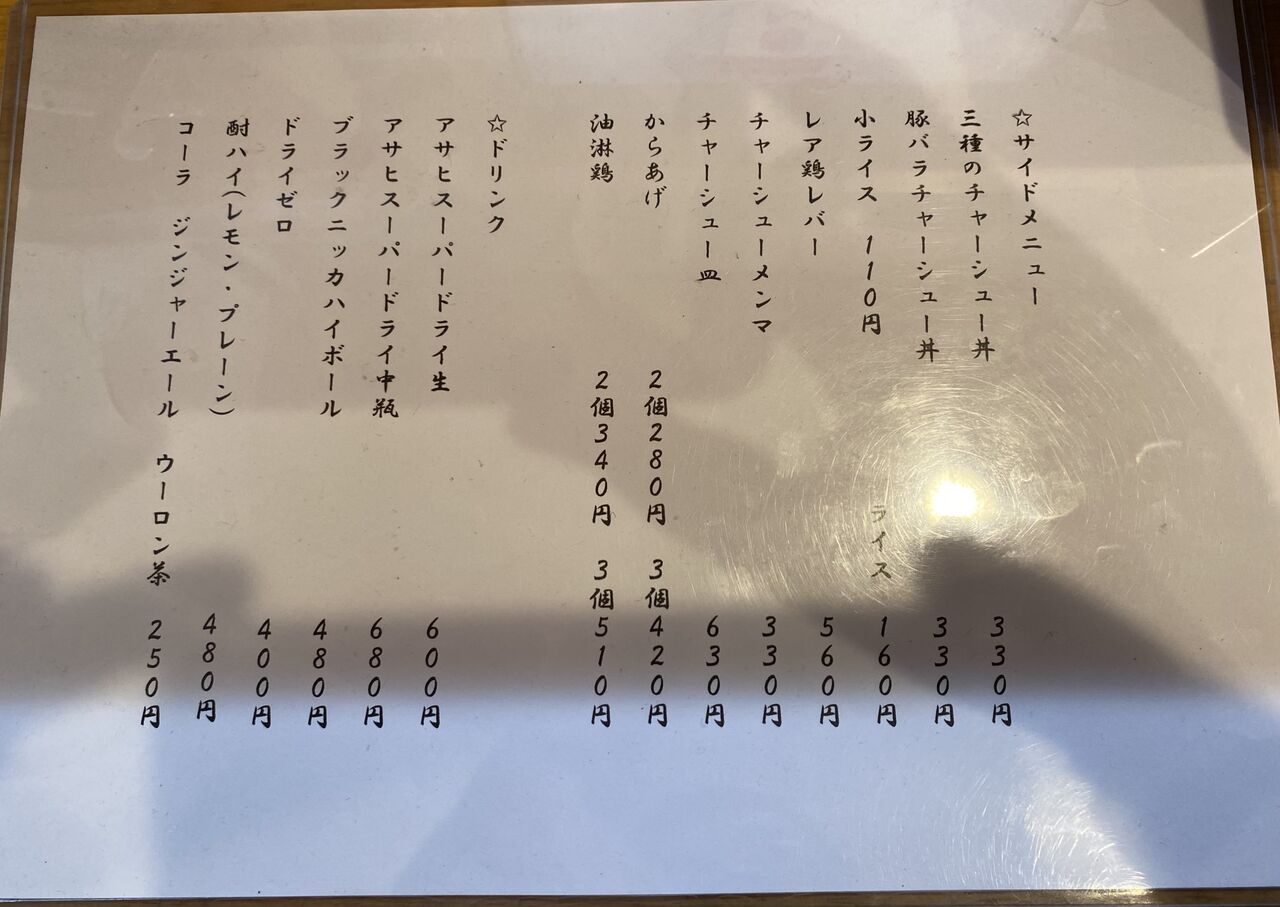 ☆サイドメニュー
三種のチャーシュー丼 330円
豚バラチャーシュー丼 330円
小ライス 110円 ライス 160円
レア鶏レバー 560円
チャーシューメンマ 330円
チャーシュー皿 630円
からあげ 2個280円 3個420円
油淋鶏 2個340円 3個510円
☆ドリンク
アサヒスーパードライ生 600円
アサヒスーパードライ中瓶 680円
ブラックニッカハイボール 480円
ドライゼロ 400円
酎ハイ(レモン・プレーン) 480円
コーラ ジンジャーエール ウーロン茶 250円